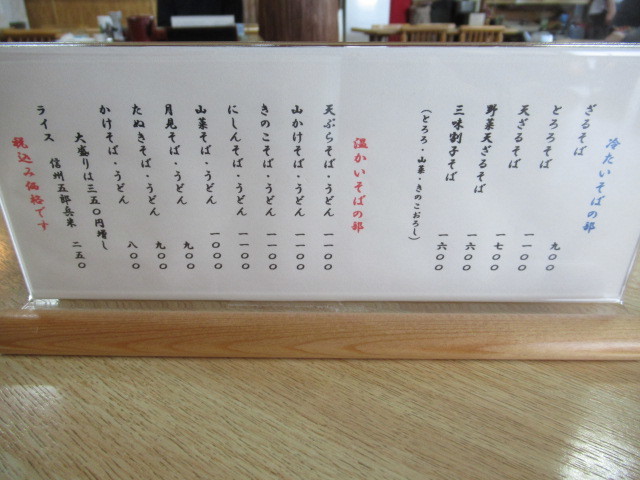 冷たいそばの部
ざるそば 九〇〇
とろろそば 一一〇〇
天ざるそば 一七〇〇
野菜天ざるそば 一六〇〇
三味割子そば 一六〇〇
(とろろ・山菜・きのこおろし)
温かいそばの部
天ぷらそば・うどん 一一〇〇
山かけそば・うどん 一一〇〇
きのこそば・うどん 一一〇〇
にしんそば・うどん 一一〇〇
山菜そば・うどん 一〇〇〇
月見そば・うどん 九〇〇
たぬきそば・うどん 九〇〇
かけそば・うどん 八〇〇
大盛りは三五〇円増し
ライス 信州五郎兵米 二五〇
税込み価格です